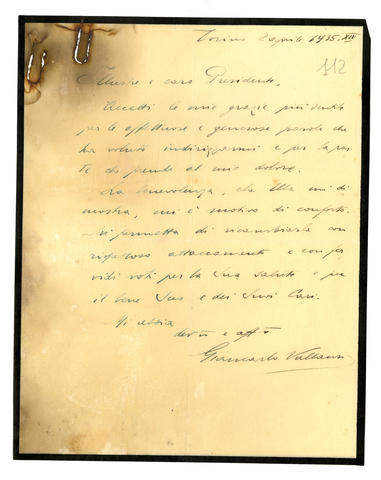 Torino 2 aprile 1935. XIV
112
Illustre e caro Presidente,
Accetti le mie grazie più sentite
per le affettuose e generose parole che
ha voluto indirizzarmi e per la par
te che prende al mio dolore.
La benevolenza, che Ella mi di
mostra, mi è motivo di conforto.
Mi permetta di ricambiarla con
rispettoso attaccamento e con fer
vidi voti per la Sua salute e per
il bene Suo e dei Suoi Cari.
Mi abbia
dev.mo e aff.mo
Giancarlo Vallauri